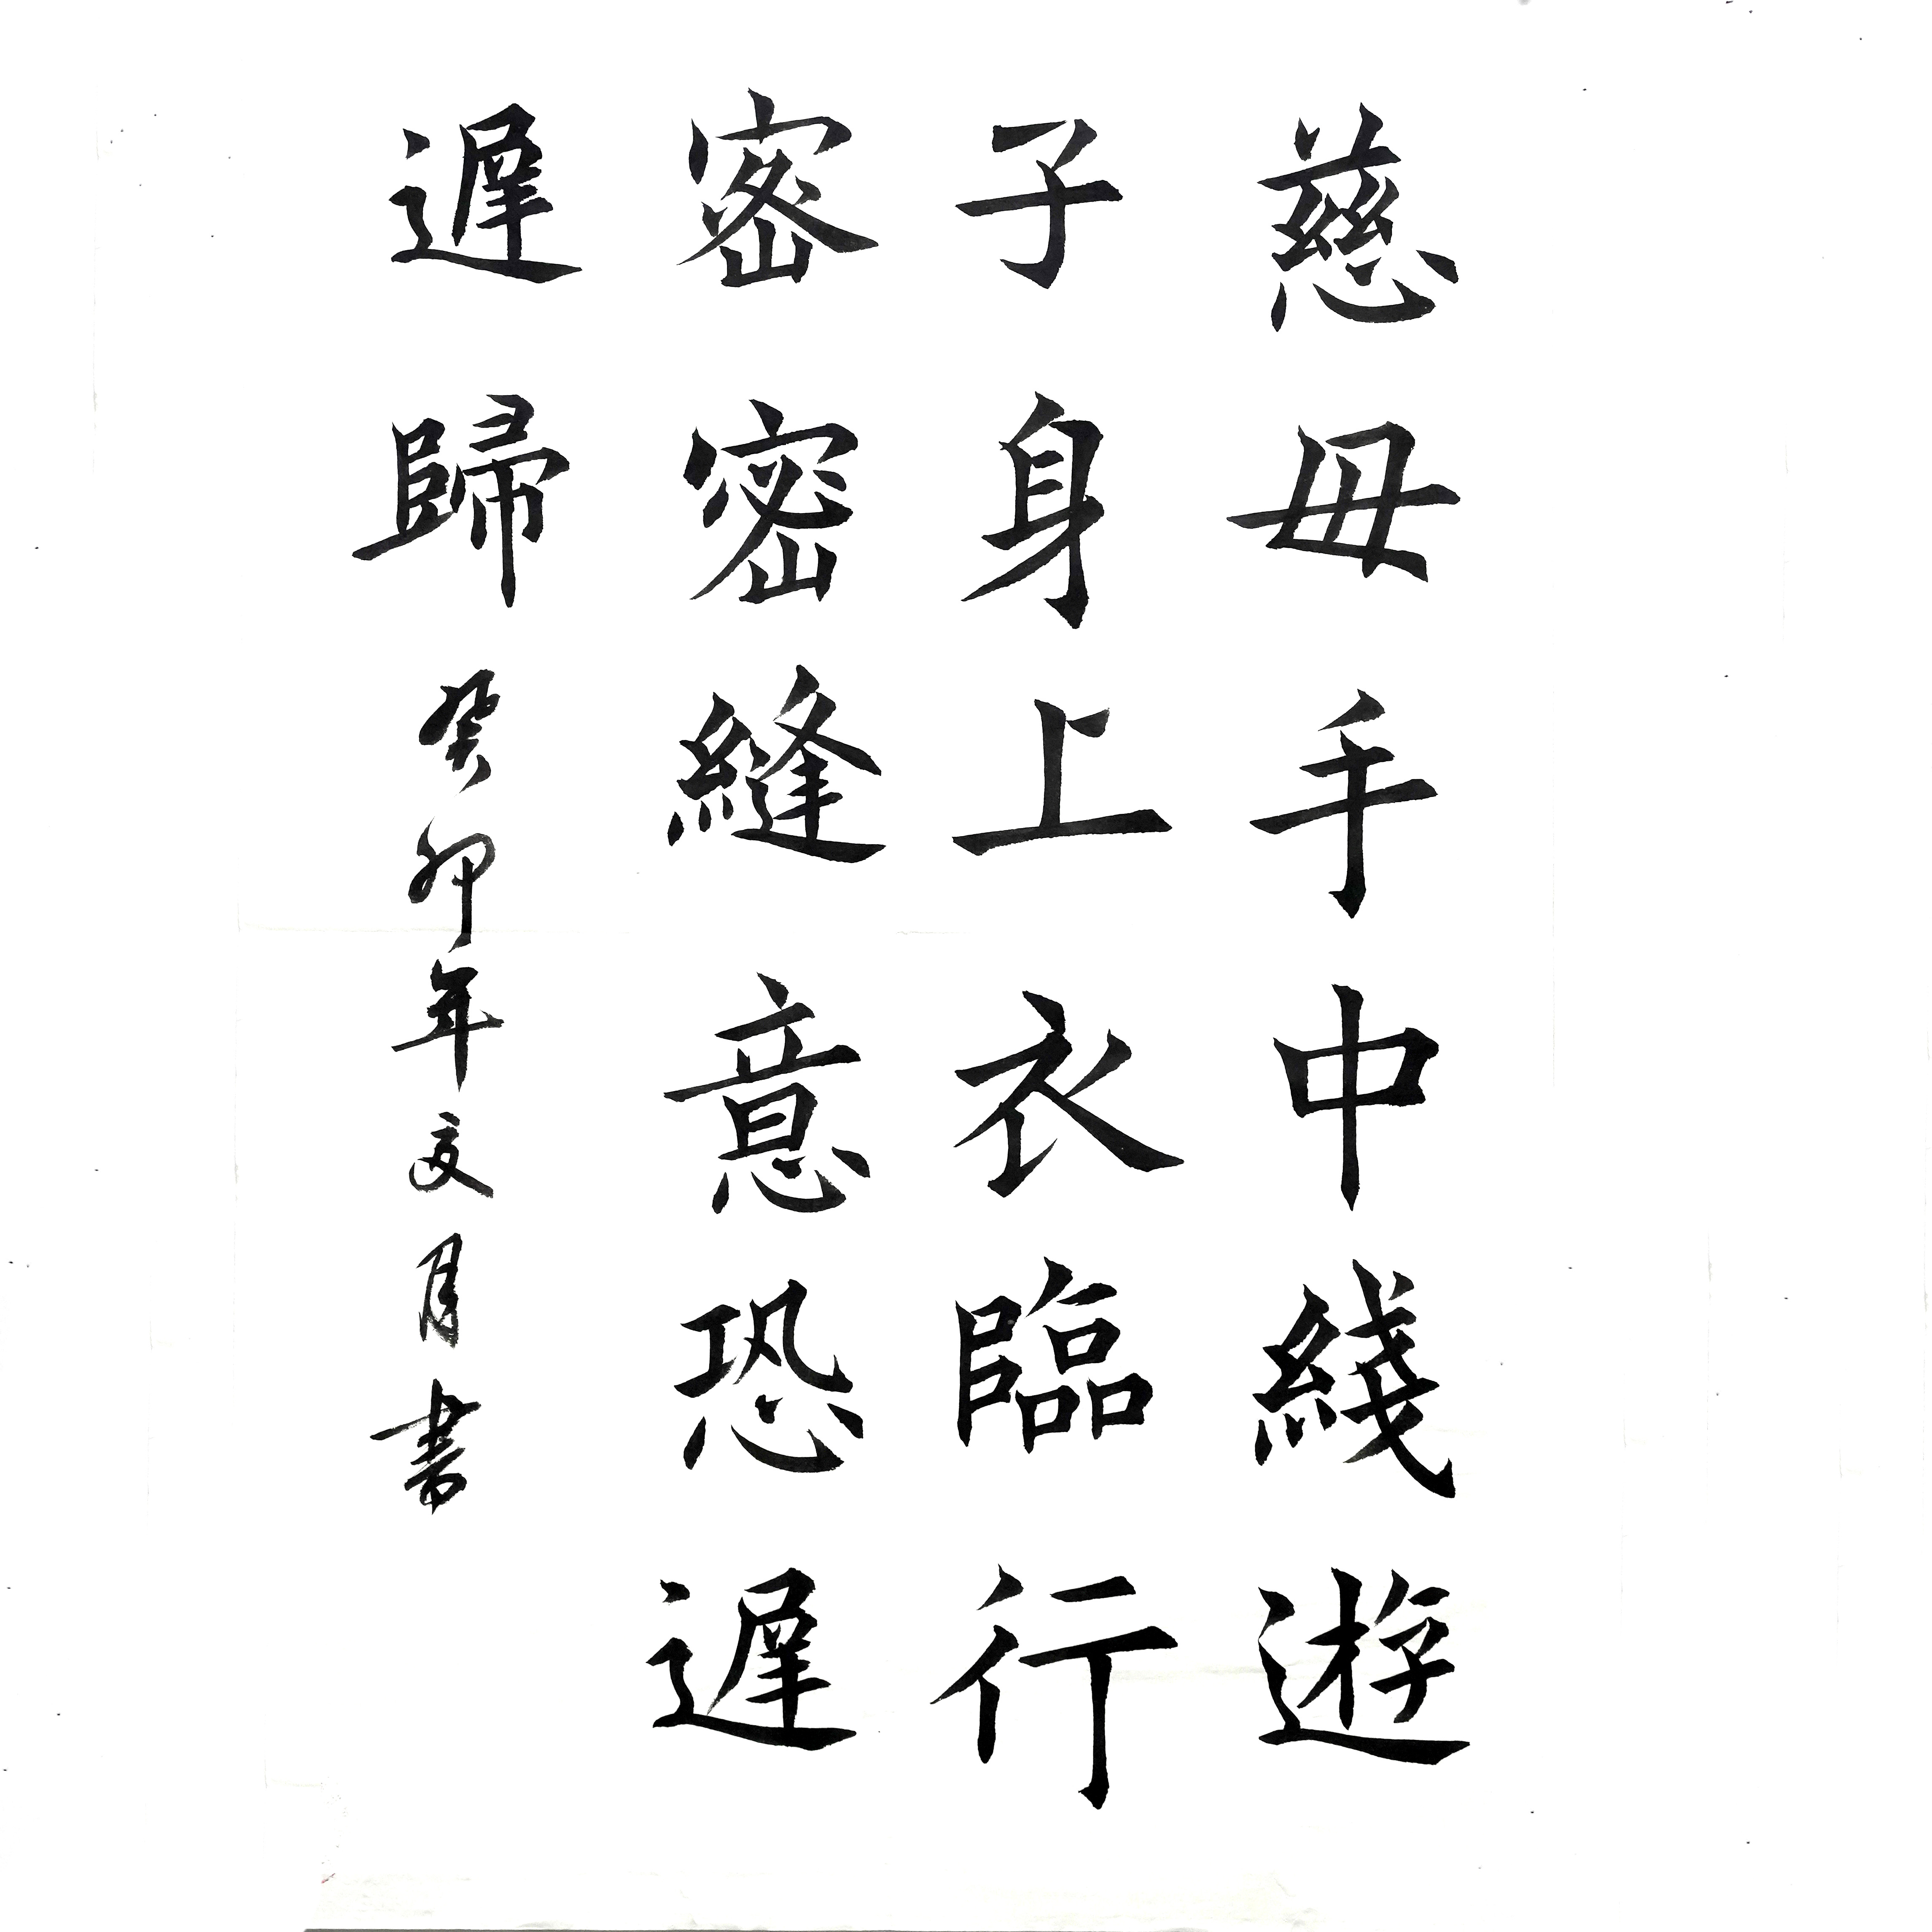 慈母手中綫遊
子身上衣臨行
密密縫意恐遲
遲歸癸卯年文月書